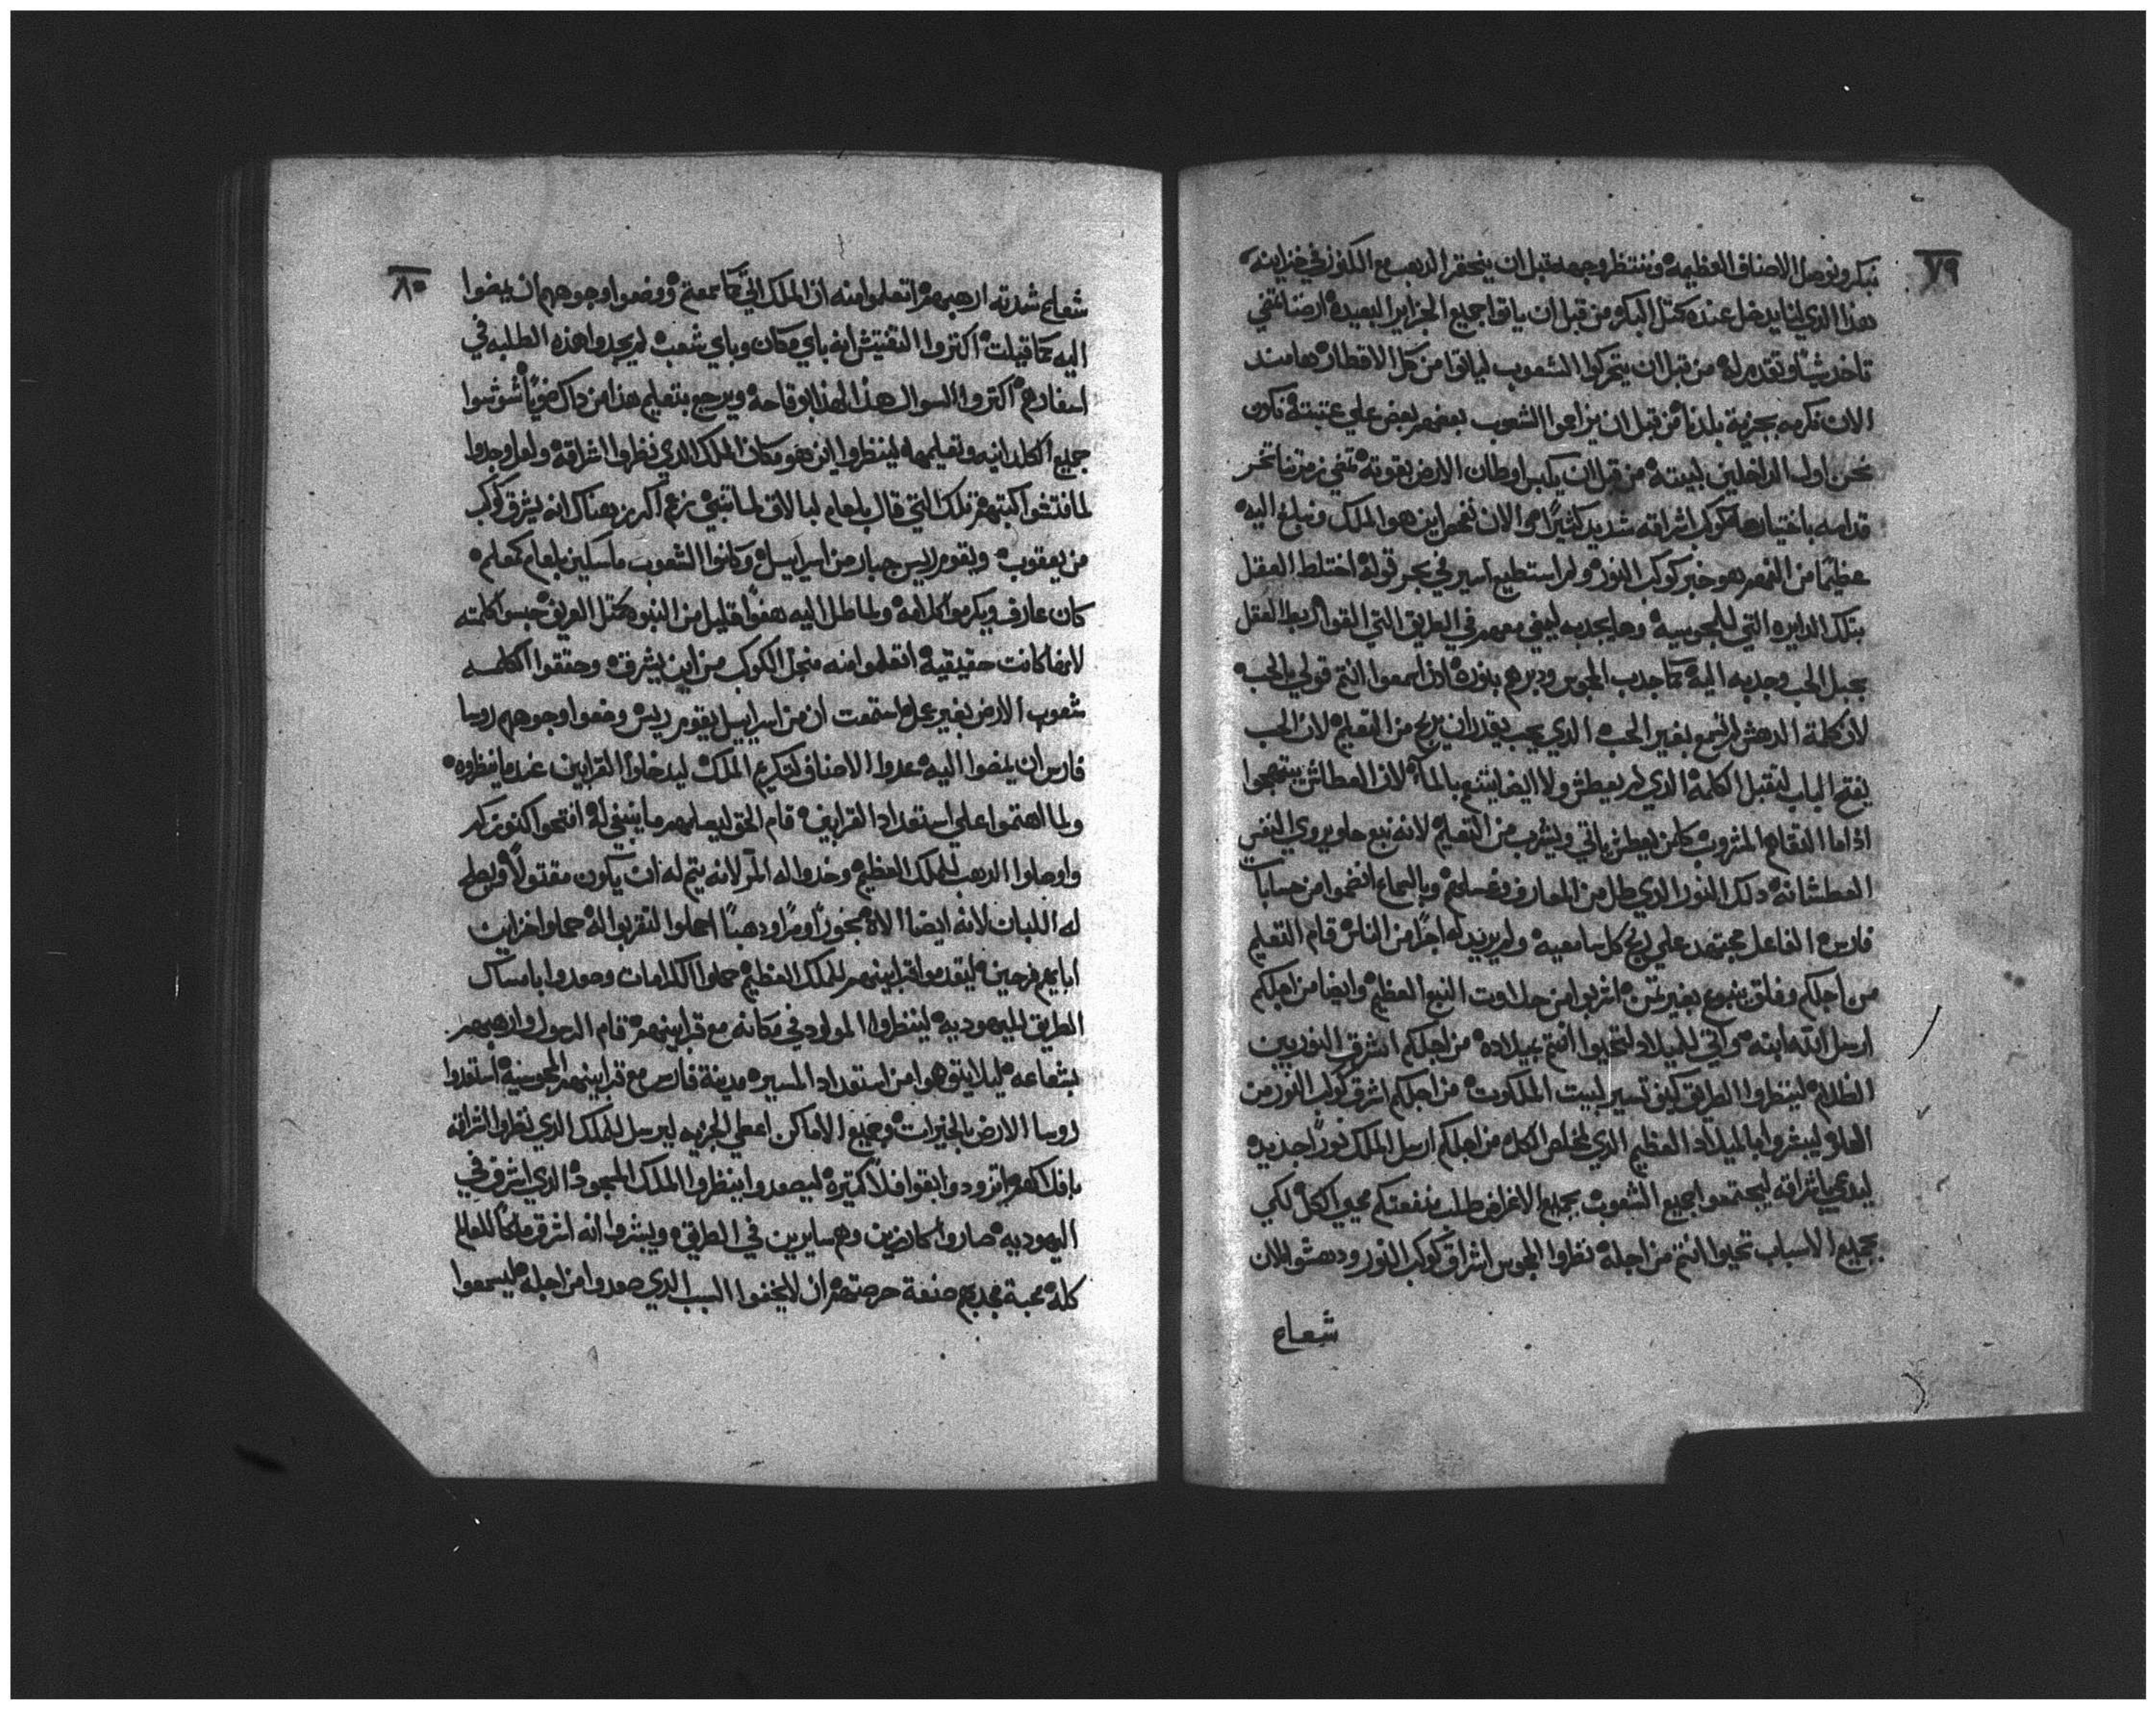 ٧٩
نبكر ونوصل الاصناف العظيمه وننتظر وجهه قبل ان ينحقر الدهب مع الكنوز في خزاينه
هذا الذي لنا يدخل عنده كمثل البكر ومن قبل ان ياتوا جميع الجزاير البعيده ارضنا تمضي
تاخد شيئا وتقدم له من قبل ان يتحركوا الشعوب لياتوا من كل الاقطار هامند
الان نكرمه بجزية بلدنا من قبل ان يزاحموا الشعوب بعضهم بعض علي عتبته نكون
نحن اول الداخلين لبيته من قبل ان يكبس اوطان الارض بقوته تمضي زمرتنا تخر
قدامه باختيارها كوكب اشراقه شديد كثيرا هوا الان نفحص اين هو الملك ونبلغ اليه
عظيما من الفهم هو خبر كوكب النور ولم استطيع اسير في بحر قوله اختلط العقل
بتلك الدايره التي للمجوسيه وجا يجدبه ليمضي معهم في الطريق التي التقوا اربط العقل
بحبل الحب وجدبه اليه كما جدب المجوس ودبرهم بنوره ادا اسمعوا انتم قولي بالحب
لان كلمة الدهش لم تسمع بغير الحب الذي يحب يقدر ان يربح من التعليم لان الحب
يفتح الباب لتقبل الكلمه الذي لم يعطش ولا ايضا يتنعم بالماء لان العطاش يبتهجوا
اذا ما التقاهم المشروب كل من يعطش ياتي ويشرب من التعليم لانه نبع حلو يروي النفس
العطشانه ذلك النور الذي طل من المعارف وغسلهم وبالسماع انفهموا من حسابات
فارس الفاعل مجتهد علي ربح كل سامعيه ولم يريد له اجرا من الناس قام التعليم
من اجلكم وفلق ينبوع بغير ثمن اشربوا من حلاوت النبع العظيم وايضا من اجلكم
ارسل الله ابنه واتي للميلاد لتحيوا انتم بميلاده من اجلكم اشرق النور بين
الظلام لينظروا الطريق كيف تسير لبيت الملكوت من اجلكم اشرق كوكب النور من
العلو ليبشروا بالميلاد العظيم الذي لخلاص الكل من اجلكم ارسل الملك نورا جديده
ليدعي باشراقه ليجتمعوا جميع الشعوب بجميع الاغراض طلب منفعتكم محيي الكل لكي
بجميع الاسباب تحيوا انتم من اجله نظروا المجوس اشراق كوكب النور ودهشوا لان
شعاع
٨٠
شعاع شدته ارهبهم اتعلموا منه ان الملك اتي كما سمعتم ووضعوا وجوههم ان يمضوا
اليه كما قيلت اكتروا التفتيش انه باي مكان وباي شعب لم يجدوا هذه الطلبه في
اسفارهم اكتروا السوال هذا لهذا بوقاحه ويرجع بتعليم هذا من داك شوشوا
جميع الكلدانيه وتعليمها لينظروا اين هو مكان الملك الدي نظروا اشراقه ولعل وجدوا
لما فتشوا كتبهم تلك التي قال بلعام لبالاق لما تنبي زعم اكرز هناك انه يشرق كوكب
من يعقوب ويقوم ريس جبار من اسراييل وكانوا الشعوب ماسكين بلعام كمعلم
كان عارف ويكرموا كلامه ولما طل اليه هفوا قليل من النبوه كمثل العريق حبسوا كلمته
لانها كانت حقيقيه اتعلموا منه منجل الكوكب من اين يشرق وحققوا الكلمه
شعوب الارض بغير عجله استمعت ان من اسراييل يقوم ريس وضعوا وجوههم روسا
فارس ان يمضوا اليه عدوا الاصناف لتكريم الملك ليدخلوا القرابين عندما ينظروه
ولما اهتموا علي استعداد القرابين قام الحق ليعلمهم ما ينبغي له افتحوا كنوزكم
واوصلوا الدهب للملك العظيم وخدوا له المر لانه يتم له ان يكون مقتولا ويصلح
له اللبان لانه ايضا الاه بخورا ومرا ودهبا احملوا لتقربوا له حملوا خزاين
ابايهم فرحين ليقدموا قرابينهم للملك العظيم حملوا الكرامات وصعدوا بامساك
الطريق لليهوديه لينظروا المولود في مكانه مع قرابينهم قام الرسول وارهبهم
بشعاعه ليلا يتوهوا من استعداد المسير مدينة فارس مع قرابينهم المجوسيه استعدوا
روسا الارض بالخيرات وجميع الاماكن اعطي الجزيه ليرسل للملك الذي نظروا اشراقه
بافلاكهم اتزودوا ابقوا فلا كتيره ليصعدوا ينظروا الملك المسجود الذي اشرق في
اليهوديه صاروا كارزين وهم سايرين في الطريق ويبشروا انه اشرق ملكا للعالم
كله محبة مجديهم صنفة حرصتهم ان لا يخفوا السبب الدي صعدوا من اجله ليسمعوا